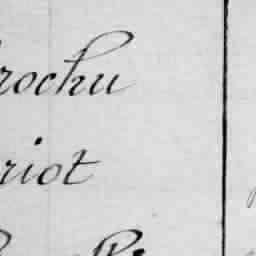 rochu
riot